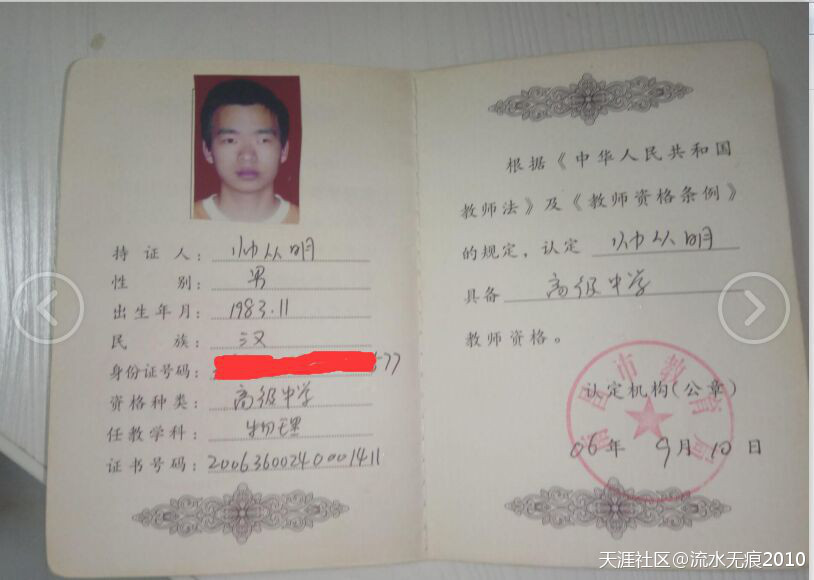 持证人：帅从明
性别：男
出生年月：1983.11
民族：汉
身份证号码：77
资格种类：高级中学
任教学科：物理
证书号码：20063600240001411
根据《中华人民共和国
教师法》及《教师资格条例》
的规定，认定 帅从明
具备 高级中学
教师资格。
市教育局
认定机构(公章)
06年9月10日
天涯社区@流水无痕2010